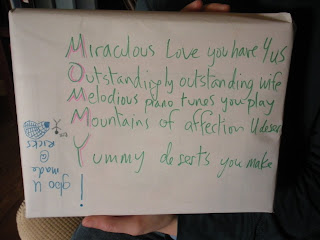 Miraculous Love you have 4 us
Outstandingly outstanding wife
Melodious piano tunes you play
Mountains of affection U deserv
Yummy deserts you make
!
made
@
RICKS